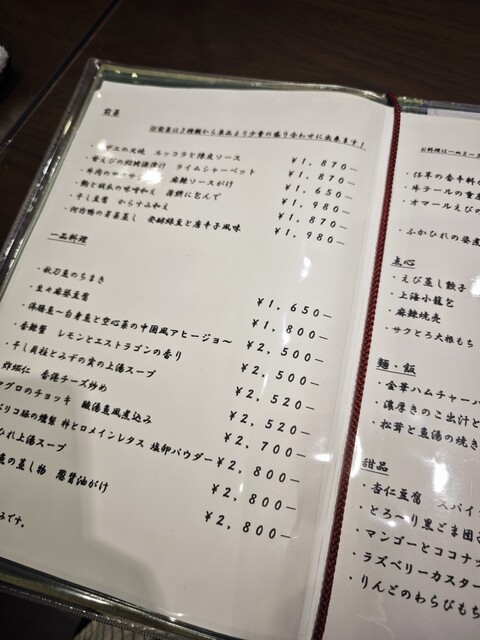 前菜
※前菜は3種類から単品より少量の盛り合わせに出来ます！
叉焼 ルッコラと陳皮ソース ¥1,870—
・甘えびの紹興酒漬け ライムシャーベット ¥1,870—
・牛肉の 麻辣ソースがけ ¥1,650—
・鮑と 味噌和え 薄餅に包んで ¥1,980—
・干し豆腐 からすみ和え ¥1,870—
蒸し 発酵緑豆と唐辛子風味 ¥1,980—
一品料理
・秋刀魚のちまき ¥1,650—
・生々麻婆豆腐 ¥1,800—
～白身魚と空心菜の中国風アヒージョ～ ¥2,500—
・香辣蟹 レモンとエストラゴンの香り ¥2,500—
・干し貝柱とみずの実の上湯スープ ¥2,520—
炸蝦仁 香港チーズ炒め ¥2,520—
グロのチョッキ 酸湯魚風煮込み ¥2,700—
リコ豚の燻製 杮とロメインレタス 塩卵パウダー ¥2,800—
ひれ上湯スープ ¥2,800—
魚の蒸し物 葱醤油がけ ¥2,800—
みです。
お料理は一皿2～3
・仔羊の香辛料
・牛テールの豆
・オマールえびの
・ふかひれの姿煮
点心
・えび蒸し餃子
・上海小籠包
・麻辣焼売
・サクとろ大根もち
麺・飯
・金華ハムチャーハ
・濃厚きのこ出汁と
・松茸と魚湯の焼き
甜品
・杏仁豆腐 スパイ
・とろ～り黒ごま団
・マンゴーとココナッ
・ラズベリーカスター
・りんごのわらびもち